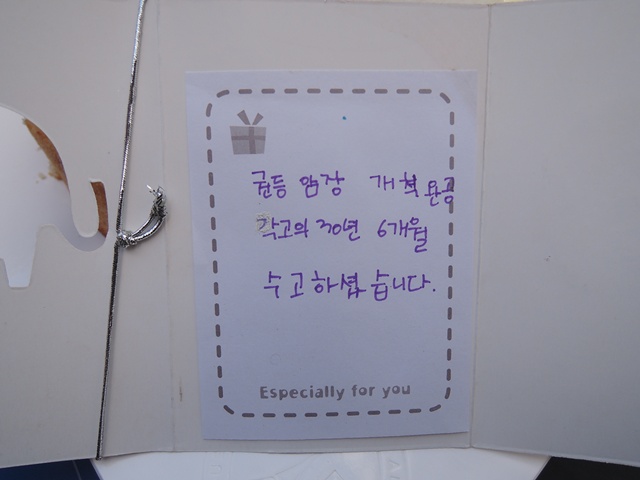 권등 암장 개척 완공
각고의 30년 6개월
수고하셨습니다.
Especially for you